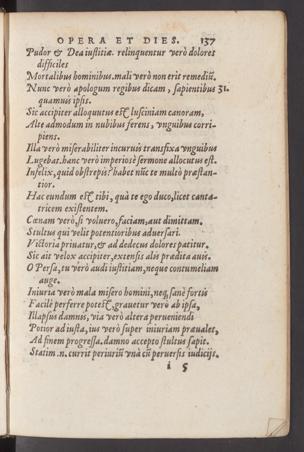 OPERA ET DIES. 137
Pudor & Dea iustitiæ. relinquentur verò dolores
difficiles
Mortalibus hominibus. mali verò non erit remediū.
Nunc verò apologum regibus dicam, sapientibus 31.
quamuis ipsis.
Sic accipiter alloquutus est lusciniam canoram,
Alte admodum in nubibus ferens, vnguibus corri-
piens.
Illa verò miserabiliter incuruis transfixa vnguibus
Lugebat. hanc verò imperiosè sermone allocutus est.
Infelix, quid obstrepis? habet nūc te multo præstan-
tior.
Hac eundum est tibi, quà te ego duco, licet canta-
tricem existentem.
Cœnam verò, si voluero, faciam, aut dimittam.
Stultus qui velit potentioribus aduersari.
Victoria priuatur, & ad dedecus dolores patitur.
Sic ait velox accipiter, extensis alis prædita auis.
O Persa, tu verò audi iustitiam, neque contumeliam
auge.
Iniuria verò mala misero homini, neq, sanè fortis
Facilè perferre potest, grauetur verò ab ipsa,
Illapsus damnis, via verò altera perueniendi
Potior ad iusta, ius verò super iniuriam præualet,
Ad finem progressa. damno accepto stultus sapit.
Statim .n. currit periuriū vnà cū peruersis iudicijs.
i 5